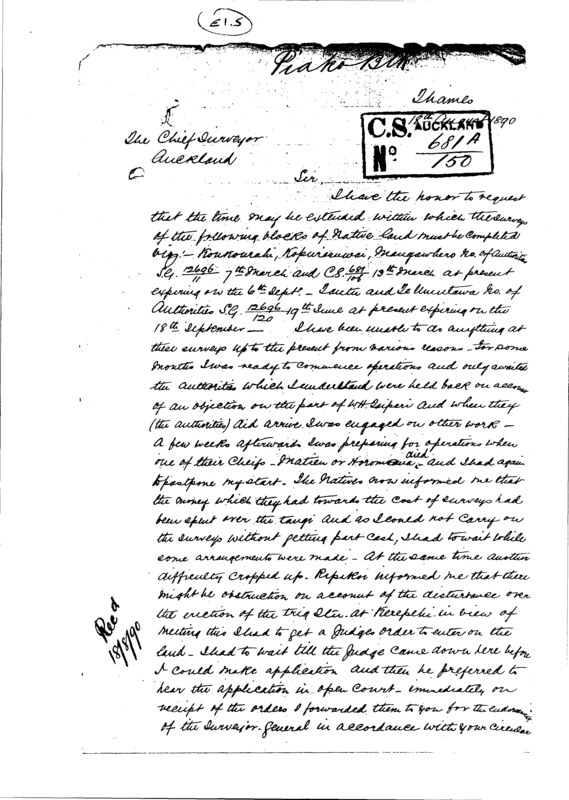 E1.5
Piako Blk
Thames
18th August 1890
C.S. AUCKLAND
No. 681A
150
The Chief Surveyor
Auckland
Sir,
I have the honor to request
that the time may be extended within which the surveys
of the following blocks of Native land must be completed
viz:- Kopuraruwai, Mangawhero No. of Authorities
S.G. 12696/11 7th March and C.S. 681/108 13th March at present
expiring on the 6th Septr. - and Te No. of
Authorities S.G. 12696/120 19th June at present expiring on the
18th September - I have been unable to do anything at
these surveys up to the present from various reasons - For some
months I was ready to commence operations and only awaited
the authorities which I understand were held back on account
of an objection on the part of WH Taipari and when they
(the authorities) did arrive I was engaged on other work -
A few weeks afterwards I was preparing for operations when
one of their Cheifs - or died - and I had again
to postpone my start. The Natives now informed me that
the money which they had towards the cost of surveys had
been spent over the tangi and as I could not carry on
the surveys without getting part cash, I had to wait while
some arrangements were made - At the same time another
difficulty cropped up. informed me that there
might be obstruction on account of the disturbance over
the erection of the trig Stn. at Kerepehi in view of
meeting this I had to get a Judges order to enter on the
land - I had to wait till the Judge came down here before
I could make application and then he preferred to
hear the application in open Court - immediately on
receipt of the orders I forwarded them to you for the
of the Surveyor General in accordance with your Circular
Rec'd
18/8/90